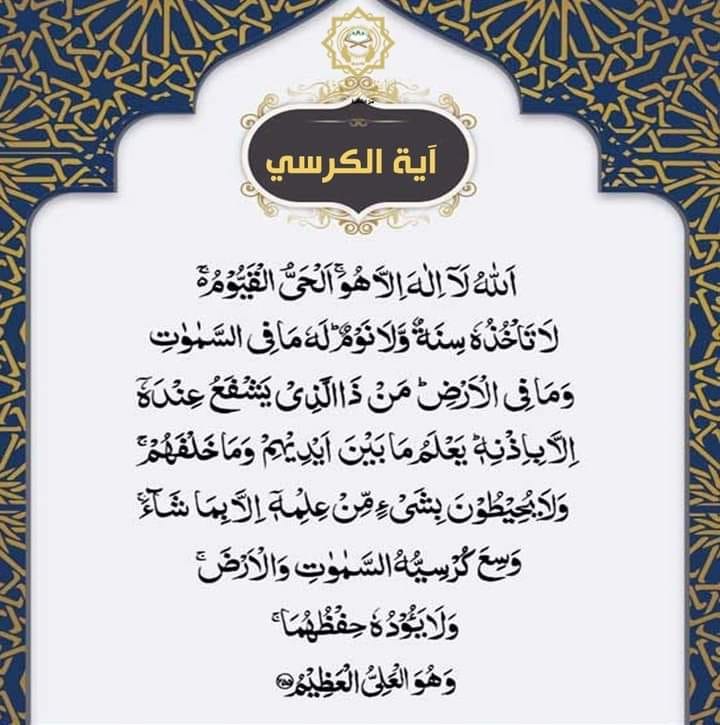 آية الكرسي
اَللّٰهُ لَآ اِلٰهَ اِلَّا هُوَۚ اَلْحَيُّ الْقَيُّوْمُ ەۚ
لَا تَاْخُذُهٗ سِنَةٌ وَّلَا نَوْمٌؕ لَهٗ مَا فِى السَّمٰوٰتِ
وَمَا فِى الْاَرْضِؕ مَنْ ذَا الَّذِىْ يَشْفَعُ عِنْدَهٗۤ
اِلَّا بِاِذْنِهٖؕ يَعْلَمُ مَا بَيْنَ اَيْدِيْهِمْ وَمَا خَلْفَهُمْۚ
وَلَا يُحِيْطُوْنَ بِشَىْءٍ مِّنْ عِلْمِهٖۤ اِلَّا بِمَا شَآءَۚ
وَسِعَ كُرْسِيُّهُ السَّمٰوٰتِ وَالْاَرْضَۚ
وَلَا يَـُٔوْدُهٗ حِفْظُهُمَاۚ
وَهُوَ الْعَلِىُّ الْعَظِيْمُ ۝۲۵۵